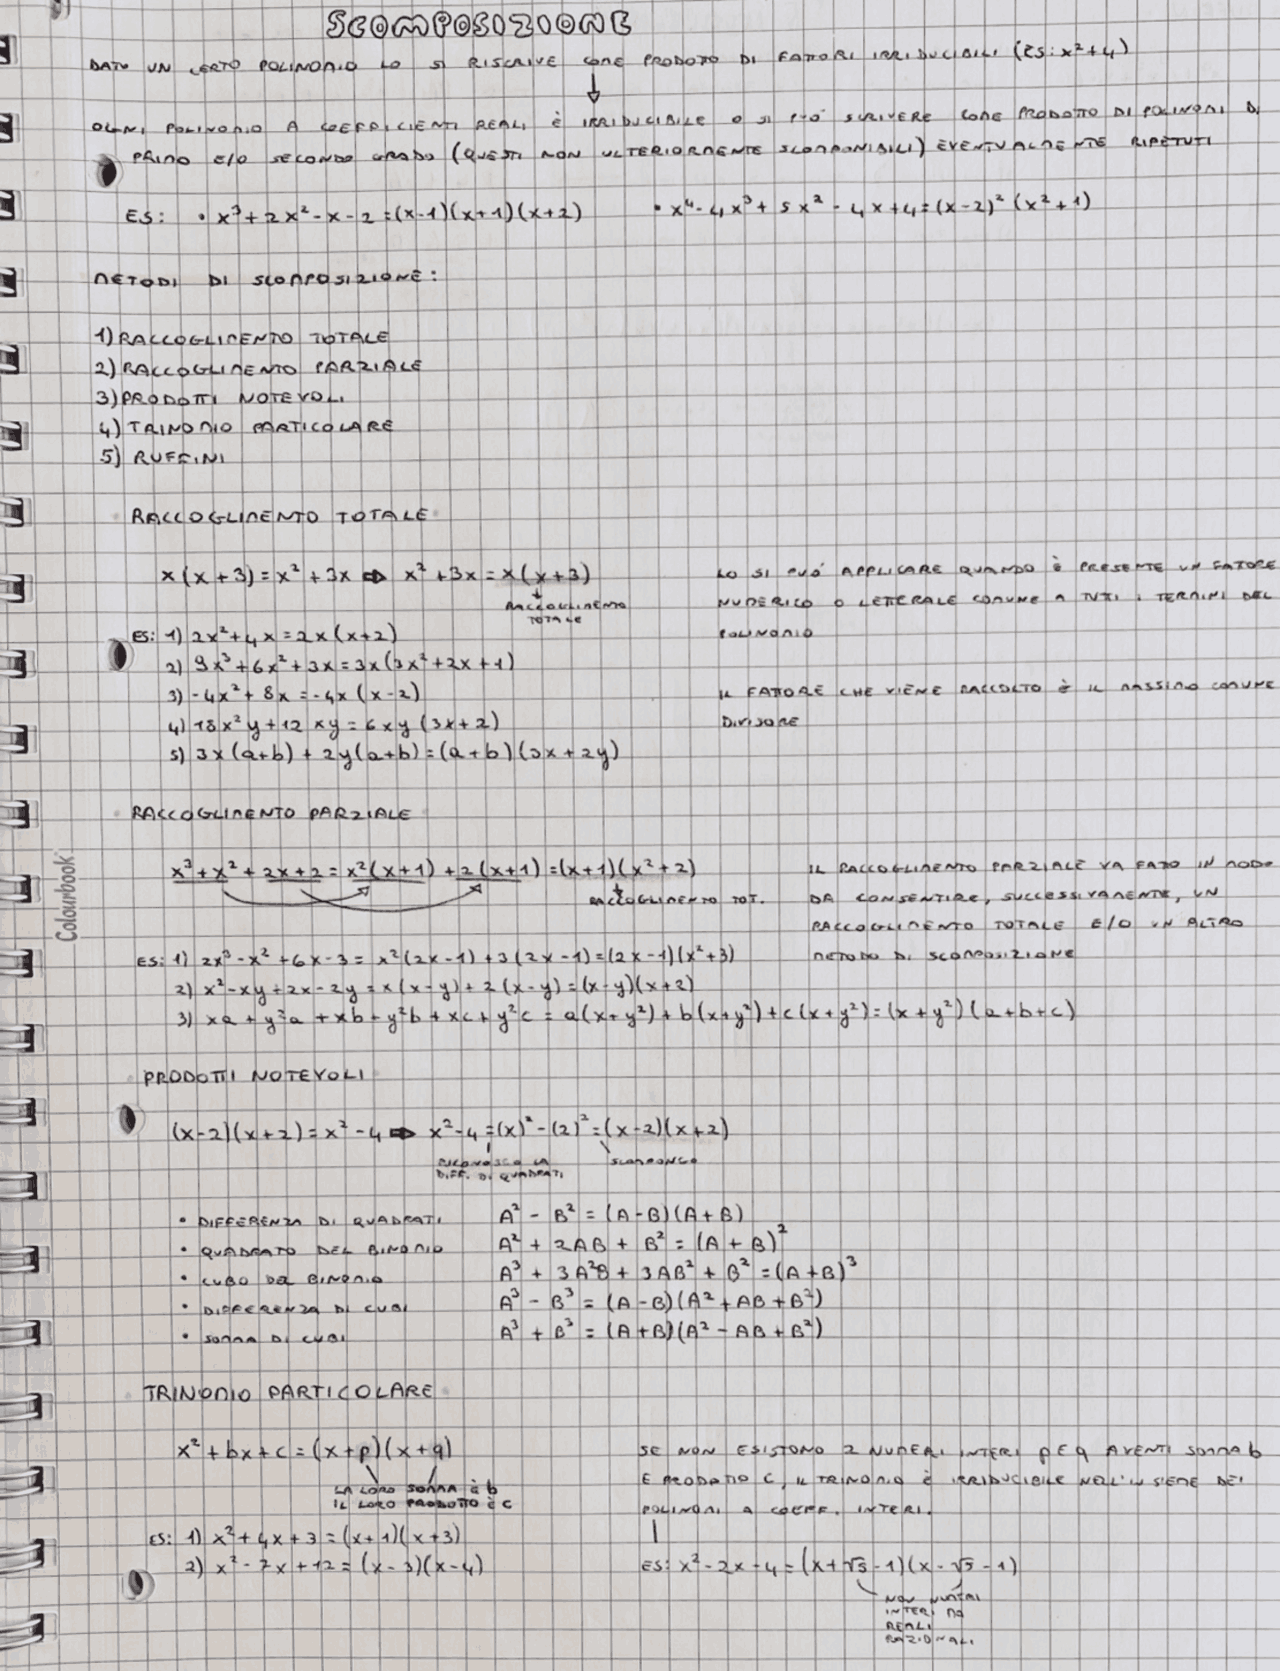 SCOMPOSIZIONE
DATO UN CERTO POLINOMIO LO SI RISCRIVE COME PRODOTTO DI FATTORI IRRIDUCIBILI (ES: x²+4)
OGNI POLINOMIO A COEFFICIENTI REALI È IRRIDUCIBILE O SI PUÓ SCRIVERE COME PRODOTTO DI POLINOMI DI
PRIMO E/O SECONDO GRADO (QUESTI NON ULTERIORMENTE SCOMPONIBILI) EVENTUALMENTE RIPETUTI
ES: • x³+2x²-x-2=(x-1)(x+1)(x+2) • x⁴-4x³+5x²-4x+4=(x-2)²(x²+1)
METODI DI SCOMPOSIZIONE:
1) RACCOGLIMENTO TOTALE
2) RACCOGLIMENTO PARZIALE
3) PRODOTTI NOTEVOLI
4) TRINOMIO PARTICOLARE
5) RUFFINI
RACCOGLIMENTO TOTALE
x(x+3)=x²+3x ⇒ x²+3x=x(x+3)
RACCOGLIMENTO
TOTALE
LO SI PUÓ APPLICARE QUANDO È PRESENTE UN FATTORE
NUMERICO O LETTERALE COMUNE A TUTTI I TERMINI DEL
POLINOMIO
ES: 1) 2x²+4x=2x(x+2)
2) 9x³+6x²+3x=3x(3x²+2x+1)
3) -4x²+8x=-4x(x-2)
4) 18x²y+12xy=6xy(3x+2)
5) 3x(a+b)+2y(a+b)=(a+b)(3x+2y)
IL FATTORE CHE VIENE RACCOLTO È IL MASSIMO COMUNE
DIVISORE
RACCOGLIMENTO PARZIALE
x³+x²+2x+2=x²(x+1)+2(x+1)=(x+1)(x²+2)
RACCOGLIMENTO TOT.
IL RACCOGLIMENTO PARZIALE VA FATTO IN MODO
DA CONSENTIRE, SUCCESSIVAMENTE, UN
RACCOGLIMENTO TOTALE E/O UN ALTRO
METODO DI SCOMPOSIZIONE
ES: 1) 2x³-x²+6x-3=x²(2x-1)+3(2x-1)=(2x-1)(x²+3)
2) x²-xy+2x-2y=x(x-y)+2(x-y)=(x-y)(x+2)
3) xa+y²a+xb+y²b+xc+y²c=a(x+y²)+b(x+y²)+c(x+y²)=(x+y²)(a+b+c)
Colourbook
PRODOTTI NOTEVOLI
(x-2)(x+2)=x²-4 ⇒ x²-4=(x)²-(2)²=(x-2)(x+2)
RICONOSCO LA
DIFF. DI QUADRATI
SCOMPONGO
• DIFFERENZA DI QUADRATI A²-B²=(A-B)(A+B)
• QUADRATO DEL BINOMIO A²+2AB+B²=(A+B)²
• CUBO DEL BINOMIO A³+3A²B+3AB²+B³=(A+B)³
• DIFFERENZA DI CUBI A³-B³=(A-B)(A²+AB+B²)
• SOMMA DI CUBI A³+B³=(A+B)(A²-AB+B²)
TRINOMIO PARTICOLARE
x²+bx+c=(x+p)(x+q)
LA LORO SOMMA È b
IL LORO PRODOTTO È C
SE NON ESISTONO 2 NUMERI INTERI p E q AVENTI SOMMA b
E PRODOTTO C, IL TRINOMIO È IRRIDUCIBILE NELL'INSIEME DEI
POLINOMI A COEFF. INTERI.
ES: 1) x²+4x+3=(x+1)(x+3)
2) x²-7x+12=(x-3)(x-4)
ES: x²-2x-4=(x+√5-1)(x-√5-1)
NON NUMERI
INTERI MA
REALI
RAZIONALI